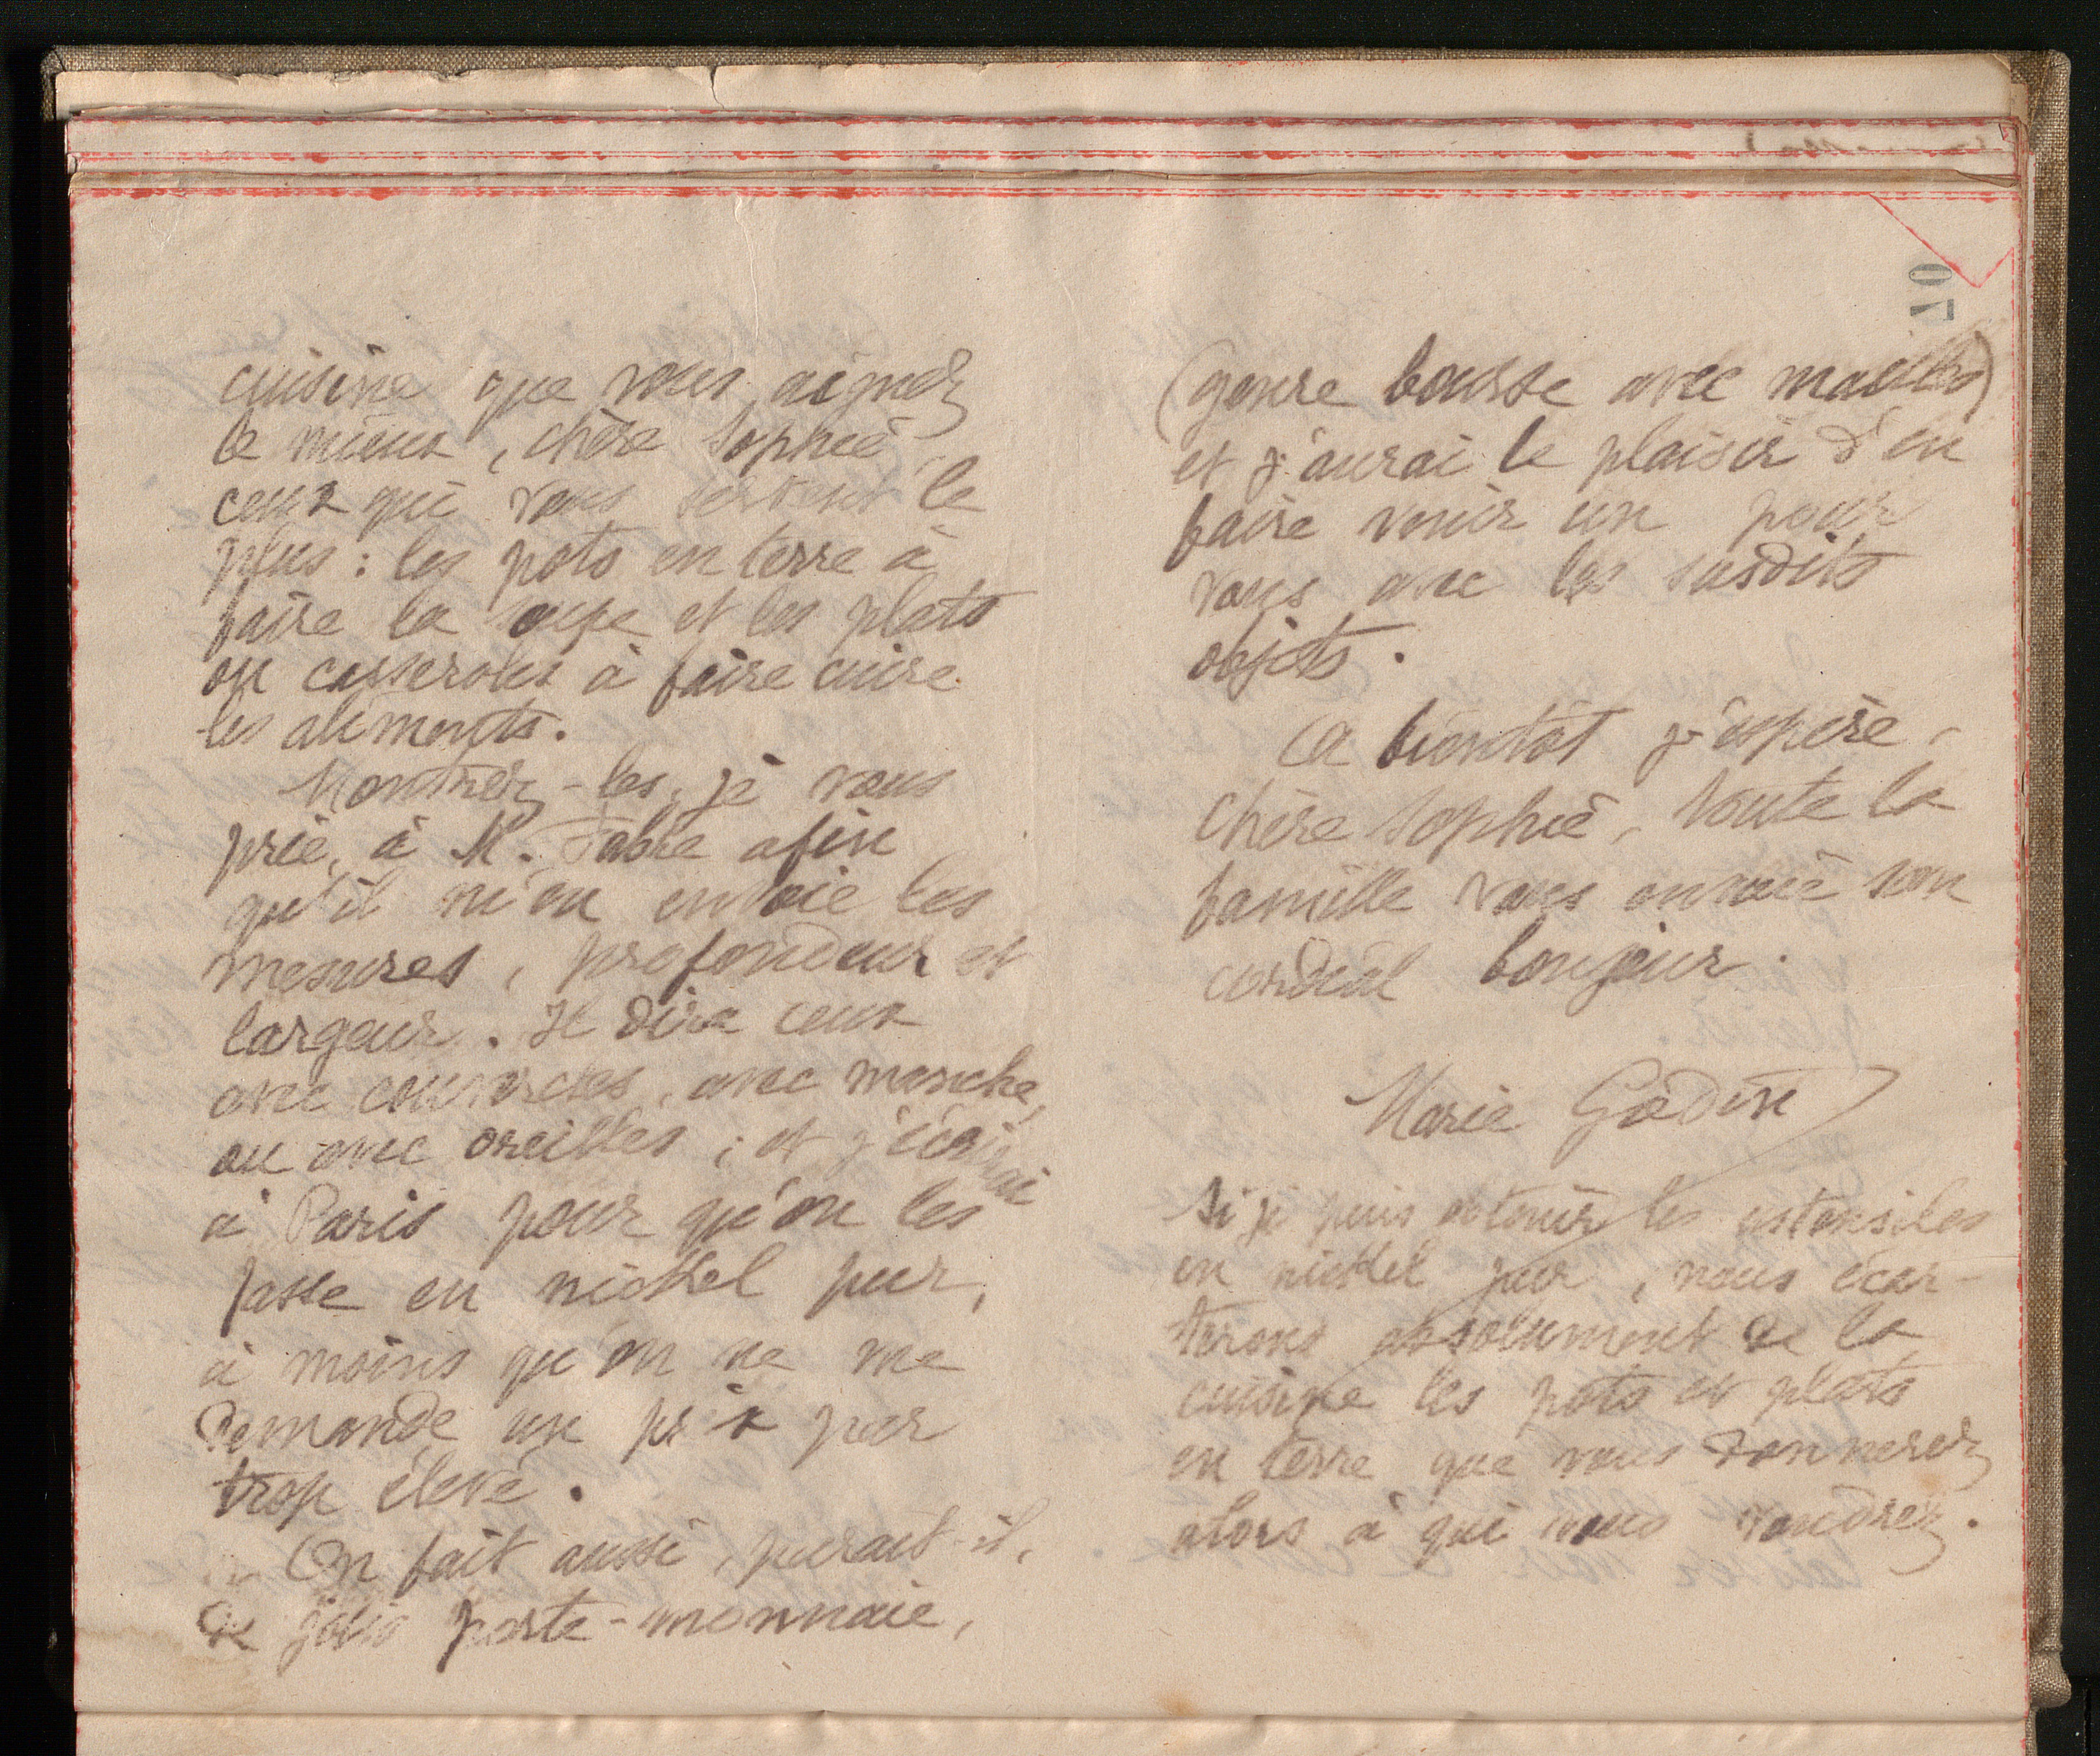 cuisine que vous aimez
le mieux, chère Sophie,
ceux qui vous servent le
plus : les pots en terre à
faire la soupe et les plats
ou casseroles à faire cuire
les aliments.
Montrez-les, je vous
prie, à M. Fabre afin
qu'il m'en envoie les
mesures, profondeur et
largeur. Il dira ceux
avec couvercles, avec manche,
ou avec oreilles ; et j'écrirai
à Paris pour qu'on les
fasse en nickel pur,
à moins qu'on ne me
demande un prix par
trop élevé.
On fait aussi, paraît-il,
de jolis porte-monnaie,
70
(genre bourse avec mailles)
et j'aurai le plaisir d'en
faire venir un pour
vous avec les susdits
objets.
A bientôt j'espère,
chère Sophie, toute la
famille vous envoie son
cordial bonjour.
Marie Godin
Si je puis obtenir les ustensiles
en nickel pur, nous écar-
terons absolument de la
cuisine les pots et plats
en terre que vous donnerez
alors à qui vous voudrez.